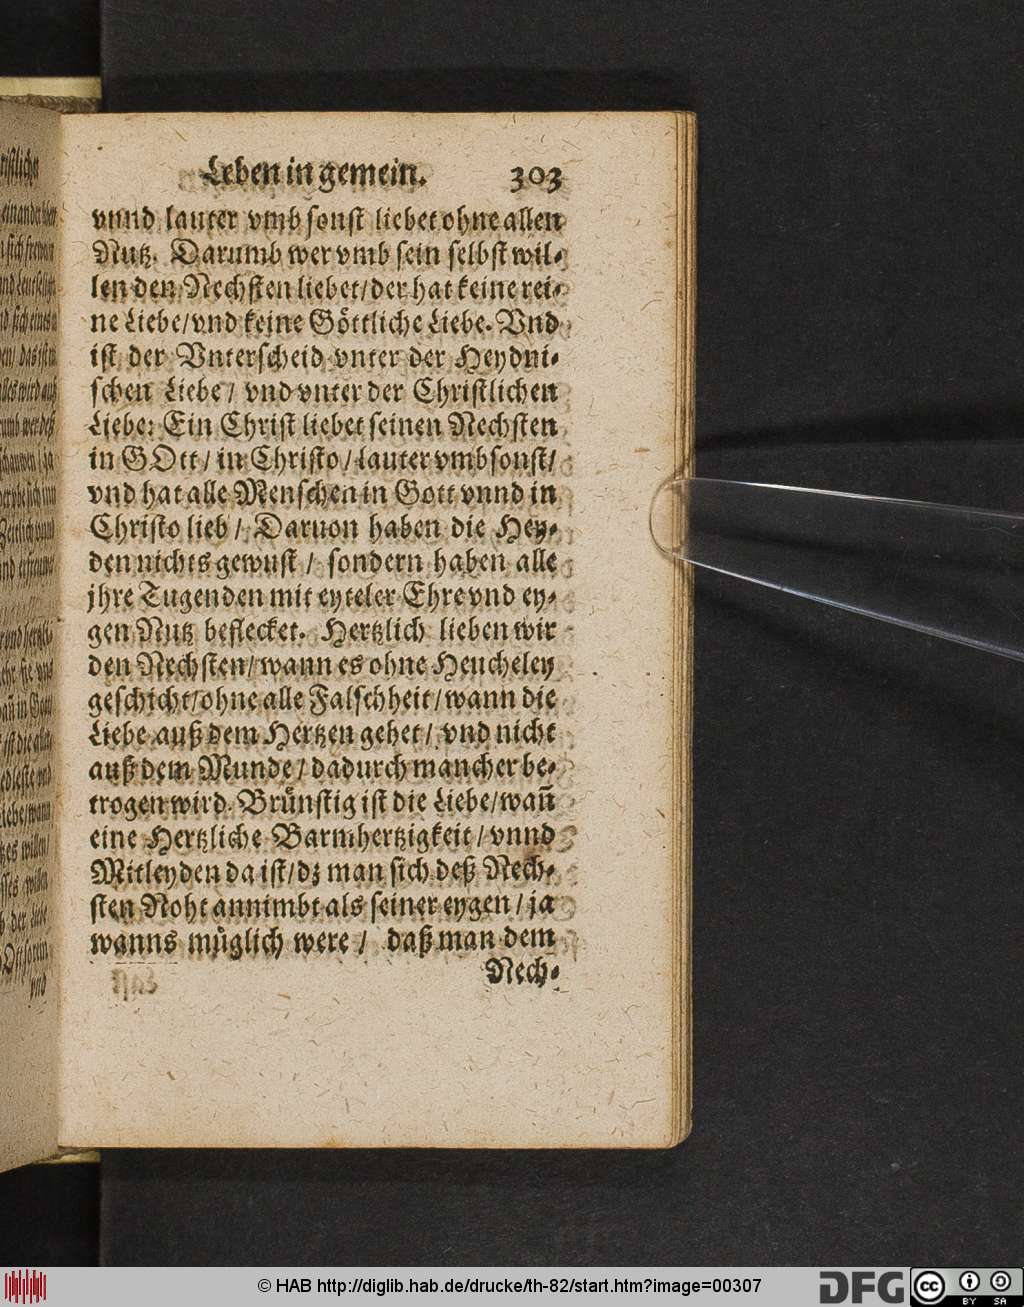 Leben in gemein. 303
vnnd lauter vmb sonst liebet ohne allen
Nutz. Darumb wer vmb sein selbst wil-
len den Nechsten liebet/ der hat keine rei-
ne Liebe/ vnd keine Göttliche Liebe. Vnd
ist der Vnterscheid vnter der Heydni-
schen Liebe/ vnd vnter der Christlichen
Liebe: Ein Christ liebet seinen Nechsten
in GOtt/ in Christo/ lauter vmbsonst/
vnd hat alle Menschen in Gott vnnd in
Christo lieb/ Daruon haben die Hey-
den nichts gewust/ sondern haben alle
jhre Tugenden mit eyteler Ehre vnd ey-
gen Nutz beflecket. Hertzlich lieben wir
den Nechsten/ wann es ohne Heucheley
geschicht/ ohne alle Falschheit/ wann die
Liebe auß dem Hertzen gehet/ vnd nicht
auß dem Munde/ dadurch mancher be-
trogen wird. Brünstig ist die Liebe/ wañ
eine Hertzliche Barmhertzigkeit/ vnnd
Mitleyden da ist/ dz man sich deß Nech-
sten Noht annimbt als seiner eygen/ ja
wanns müglich were/ daß man dem
Nech-
© HAB http://diglib.hab.de/drucke/th-82/start.htm?image=00307
DFG
cc BY SA